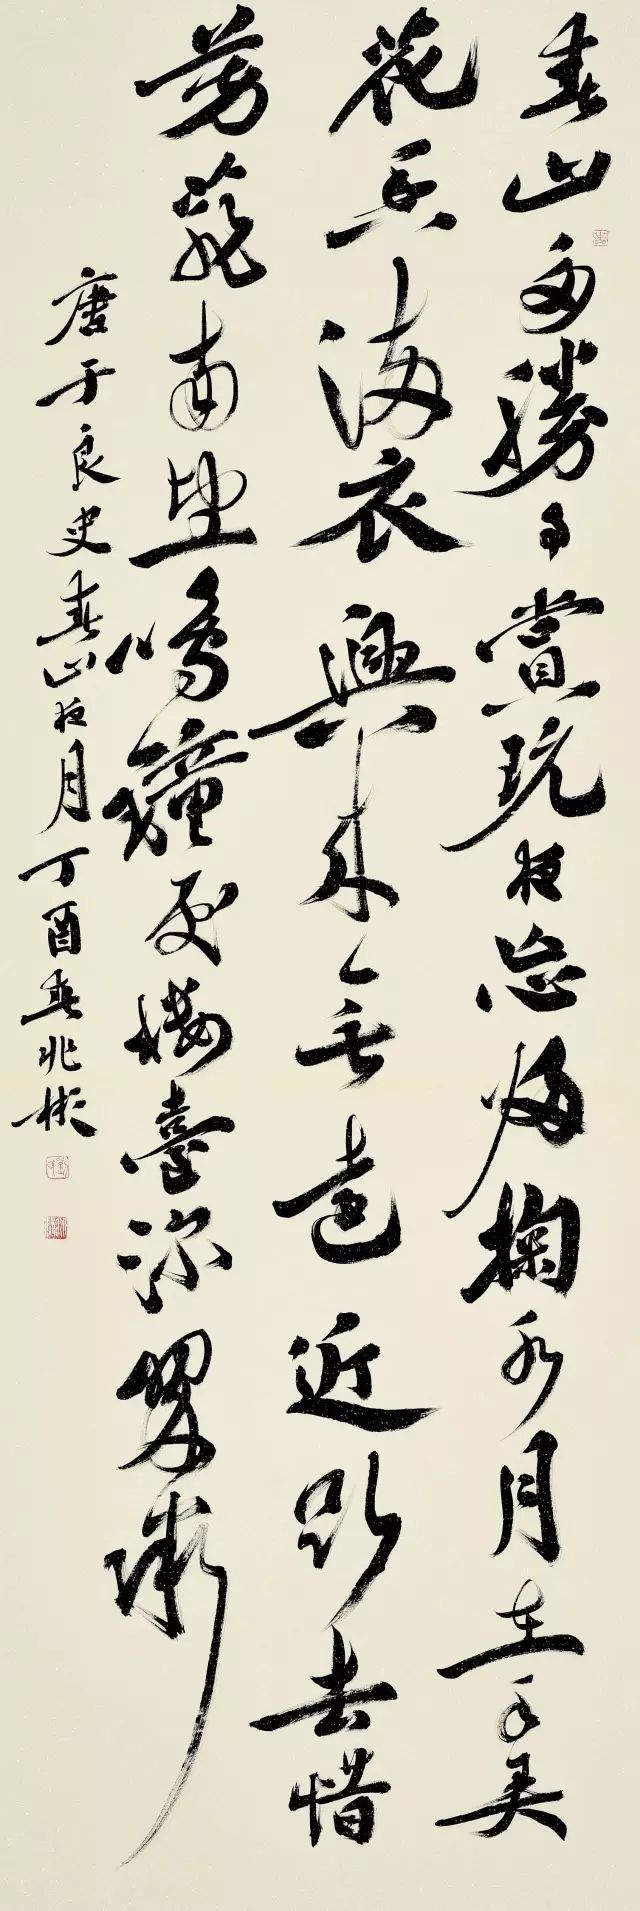 春山多勝事賞玩夜忘歸掬水月在手弄
花香滿衣興來無遠近欲去惜
芳菲南望鳴鐘處樓臺深翠微
唐于良史春山夜月丁酉春兆彬